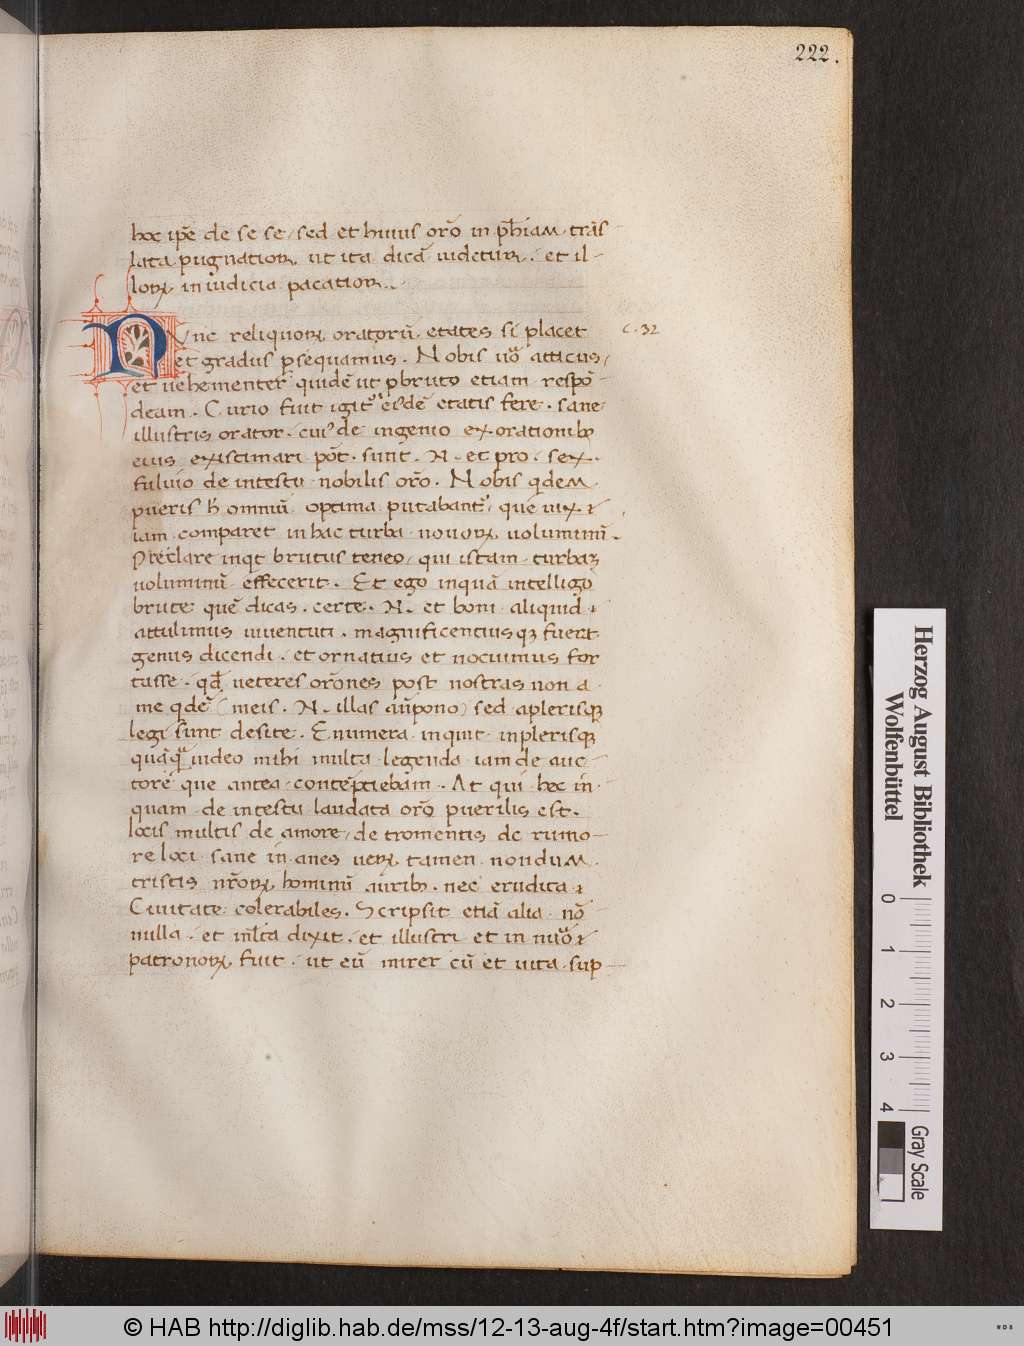 222.
hoc ip̄e de se se / sed et huius orō in ph̄iam trās
lata pugnatioꝝ ut ita dicā uidetur . et il-
loꝝ in iudicia pacatioꝝ .
Nunc reliquoꝝ oratorū etates si placet
C. 32
et gradus ꝑsequamus . Nobis uō atticus /
et uehementer quidē ut p bruto etiam respō
deam . Curio fuit igit eiꝰdē etatis fere . sane
illustris orator . cuiꝰ de ingenio ex orationibꝫ
eius existimari pōt . sunt . N . et pro . sex .
fuluio de incestu nobilis orō . Nobis qdem
pueris h̄ omniū optima putabant / que uix
iam comparet in hac turba nouoꝝ uoluminū .
Preclare inqt brutus teneo / qui istam turbaꝫ
uoluminū effecerit . Et ego inquā intelligo
brute quē dicas . certe . N . et boni aliquid
attulimus iuuentuti . magnificentiusqꝫ fuerat
genus dicendi . et ornatius et nocuimus for
tasse . qđ ueteres orōnes post nostras non a
me qdē ( meis . N . illas aūpono ) sed a plerisqꝫ
legi sunt desite . Enumera inquit in plerisqꝫ
quāqꝫ uideo mihi multa legenda iam de auc
torē que antea conteptiebam . At qui hec in
quam de incestu laudata orō puerilis est .
locis multis de amore / de tromentis de rumo-
re loci sane in anes uerꝝ tamen nondum
tristis nr̄oꝝ hominū auribꝫ nec erudita
Ciuitate colerabiles . Scripsit etiā alia nō
nulla . et ml̄ta dixit . et illustri et in nūo
patronoꝝ fuit . ut eū mirer cū et uita sup-
Herzog August Bibliothek
Wolfenbüttel
0 1 2 3 4
Gray Scale
© HAB http://diglib.hab.de/mss/12-13-aug-4f/start.htm?image=00451